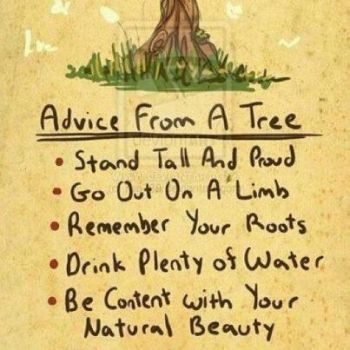 Advice From A Tree
• Stand Tall And Proud
• Go Out On A Limb
• Remember Your Roots
• Drink Plenty of Water
• Be Content with Your
Natural Beauty